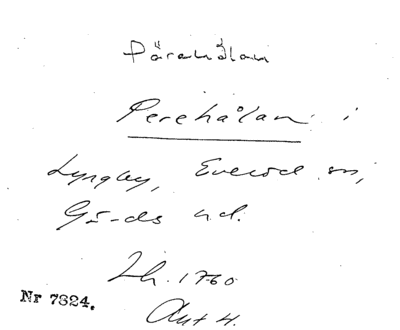 Pärahålan
Perehålan i
Lyngby, Everöd sn,
Gä-ds hd.
Lh. 1760
Akt 4.
Nr 7324.